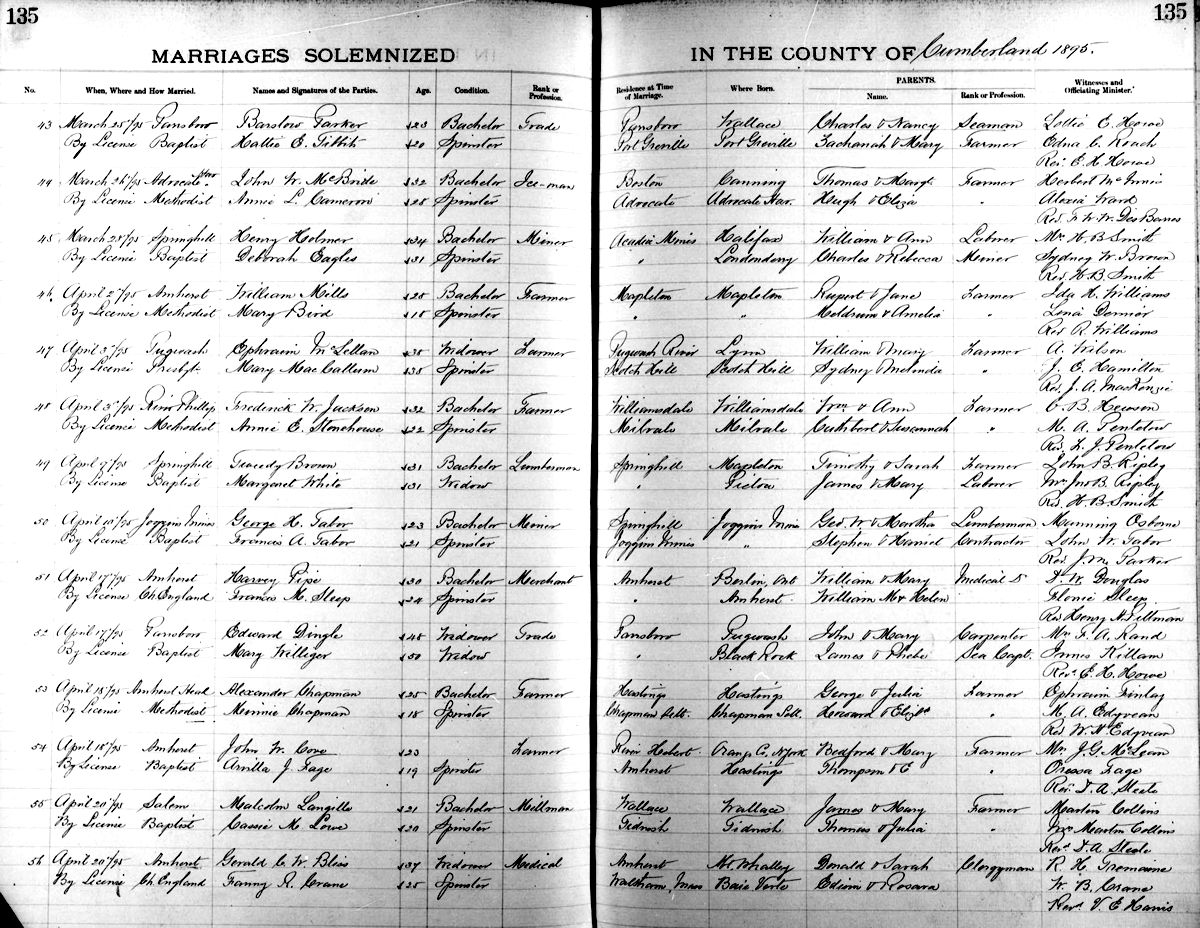 135 135
MARRIAGES SOLEMNIZED IN THE COUNTY OF Cumberland 1895.
PARENTS.
No. When, Where and How Married. Names and Signatures of the Parties. Age. Condition. Rank or Profession. Residence at Time of Marriage. Where Born. Name. Rank or Profession. Witnesses and Officiating Minister.
43 March 25/95 Parrsboro Barslow Parker 23 Bachelor Trade Parrsboro Wallace Charles & Nancy Seaman Lottie E. Howe
By License Baptist Hallie E. Tibbits 20 Spinster Port Greville Port Greville & Mary Farmer Edna C. Roach
Rev. E. H. Howe
44 March 26/95 Advocate John W. McBride 32 Bachelor Ice-man Boston Canning Thomas & Margt. Farmer Herbert McInnis
By License Methodist Annie L. Cameron 28 Spinster Advocate Advocate Har. Hugh & Eliza " Alexia Ward
Rev. F. W. W. Des Barres
45 March 28/95 Springhill Henry Holmer 34 Bachelor Miner Acadia Mines Halifax William & Ann Laborer Mrs H. B. Smith
By License Baptist Deborah Eagles 31 Spinster " Londonderry Charles & Rebecca Miner Sydney W. Brown
Rev. H. B. Smith
46 April 2/95 Amherst William Mills 28 Bachelor Farmer Mapleton Mapleton Rupert & Jane Farmer Ida H. Williams
By License Methodist Mary Bird 18 Spinster " " Meldrum & Amelia " Lena
Rev R. Williams
47 April 3/95 Pugwash Ephraim McLellan 38 Widower Farmer Pugwash River Lynn William & Mary Farmer A. Wilson
By License Presbyt. Mary MacCallum 38 Spinster Scotch Hill Scotch Hill Sydney & Melinda " J. E. Hamilton
Rev. J. A. MacKenzie
48 April 3/95 River Phillip Frederick W. Jackson 32 Bachelor Farmer Williamsdale Williamsdale Wm. & Ann Farmer C. B. Hewson
By License Methodist Annie E. Stonehouse 22 Spinster Milvale Milvale Cuthbert & Susannah " M. A. Pentelow
Rev. L. J. Pentelow
49 April 9/95 Springhill Brown 31 Bachelor Lumberman Springhill Mapleton Timothy & Sarah Farmer John B. Ripley
By License Baptist Margaret White 31 Widow " Pictou James & Mary Laborer Mrs Jno B. Ripley
Rev. H. B. Smith
50 April 10/95 Joggins Mines George H. Tabor 23 Bachelor Miner Springhill Joggins Mines Geo. W. & Martha Lumberman Manning Osborne
By License Baptist Francis A. Tabor 21 Spinster Joggins Mines " Stephen & Contractor John W. Tabor
Rev. J. M. Parker
51 April 17/95 Amherst Harvey Pipe 30 Bachelor Merchant Amherst Berlin, Ont William & Mary Medical D. D. W. Douglas
By License Ch England Frances M. Sleep 24 Spinster " Amherst William M & Helen Sleep
Rev Henry N. Pittman
52 April 17/95 Parrsboro Edward Dingle 48 Widower Trade Parrsboro Pugwash John & Mary Carpenter Mrs F. A. Rand
By License Baptist Mary Williger 50 Widow " Black Rock James & Phebe Sea Capt. Innes Killam
Rev. E. H. Howe
53 April 18/95 Amherst Head Alexander Chapman 25 Bachelor Farmer Hastings Hastings George & Julia Farmer Ephraim Finlay
By License Methodist Minnie Chapman 18 Spinster Chapman Sett. Chapman Sett. Howard & Elizbth " M. A. Edyvean
Rev. W. H. Edyvean
54 April 18/95 Amherst John W. Cove 23 Farmer River Hebert Orange Co. N York Bedford & Mary Farmer Mrs J. G. McLean
By License Baptist Arvilla J. Fage 19 Spinster Amherst Hastings Thompson & E " Oressa Fage
Rev. D. A. Steele
55 April 20/95 Salem Malcolm Langille 21 Bachelor Millman Wallace Wallace James & Mary Farmer Martin Collins
By License Baptist Cassie M. Lowe 20 Spinster Tidnish Tidnish Thomas & Julia " Mrs Martin Collins
Rev. D. A. Steele
56 April 20/95 Amherst Gerald C. W. Bliss 37 Widower Medical Amherst Donald & Sarah Clergyman R. H. Tremaine
By License Ch England Fanny R. Crane 25 Spinster Waltham, Mass Baie Verte & Rosara W. B. Crane
Revd. V. E. Harris